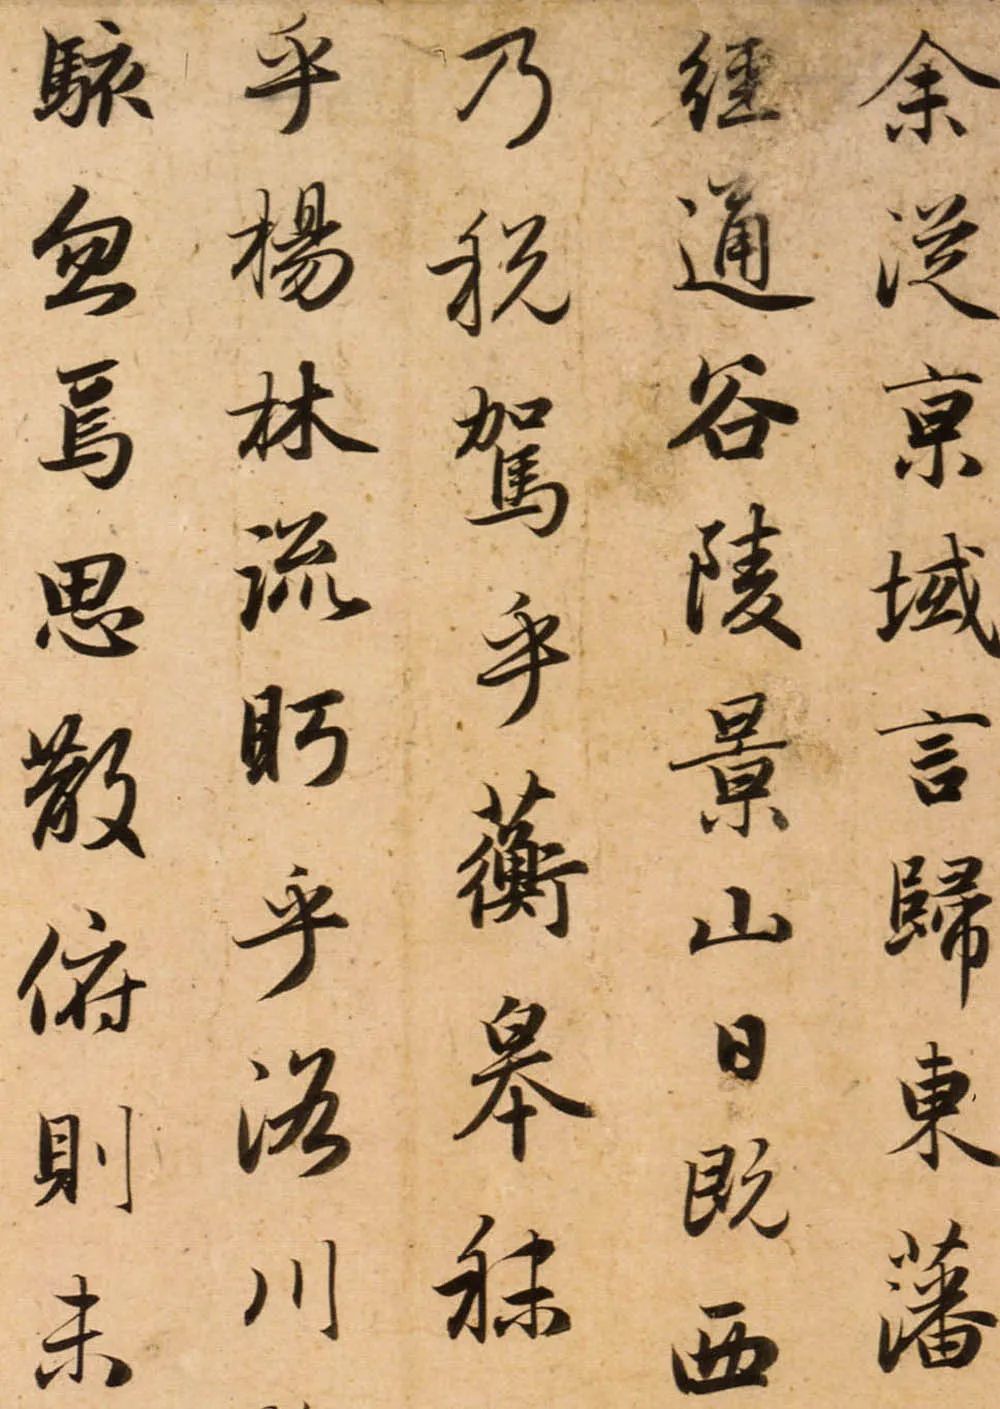 余從京域言歸東藩
經通谷陵景山日既西
乃税駕乎蘅皋秣
乎楊林流眄乎洛川
駭忽焉思散俯則未